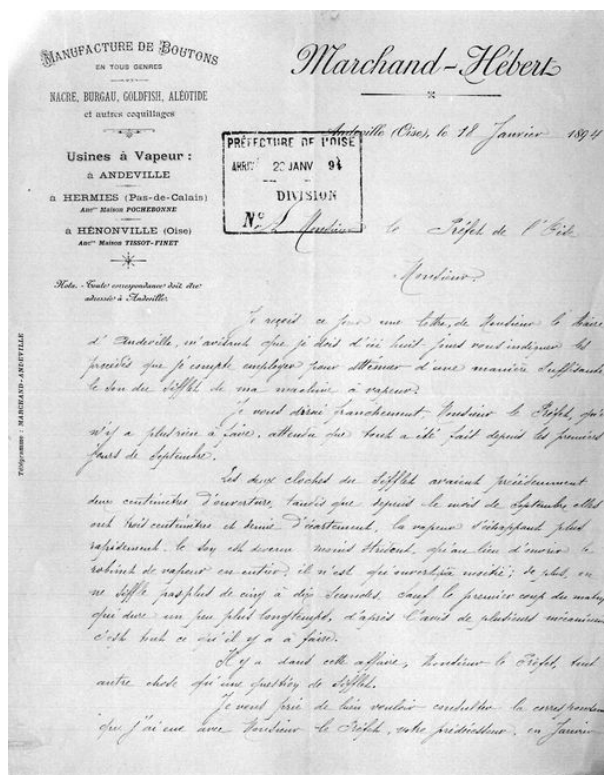 MANUFACTURE DE BOUTONS
EN TOUS GENRES
NACRE, BURGAU, GOLDFISH, ALÉOTIDE
et autres coquillages
Usines à Vapeur :
à ANDEVILLE
à HERMIES (Pas-de-Calais)
Ancne Maison POCHEBONNE
à HÉNONVILLE (Oise)
Ancne Maison TISSOT-FINET
Nota. - Toute correspondance doit être
adressée à Andeville.
Télégramme : MARCHAND-ANDEVILLE
Marchand-Hébert
Andeville (Oise), le 18 Janvier 1894
PRÉFECTURE DE L'OISE
JANV 94
DIVISION
No
Monsieur le Préfet de l'Oise
Monsieur,
Je reçois ce jour une lettre, de Monsieur le Maire
d'Andeville, m'avisant que je dois d'ici huit jours vous indiquer les
procédés que je compte employer pour atténuer d'une manière suffisante
le son du sifflet de ma machine à vapeur.
Je vous dirai franchement Monsieur le Préfet, qu'il
n'y a plus rien à faire, attendu que tout a été fait depuis les premiers
jours de Septembre.
Les deux cloches du sifflet avaient précédemment
deux centimètres d'ouverture, tandis que depuis le mois de Septembre elles
ont trois centimètres et demie d'écartement, la vapeur s'échappant plus
rapidement, le son est devenu moins strident, qu'au lieu d'ouvrir le
robinet de vapeur en entier, il n'est qu'ouvert à moitié ; de plus, on
ne siffle pas plus de cinq à dix secondes. Sauf le premier coup du matin
qui dure un peu plus longtemps, d'après l'avis de plusieurs mécaniciens
c'est tout ce qu'il y a à faire.
Il y a dans cette affaire, Monsieur le Préfet, tout
autre chose qu'une question de sifflet.
Je vous prie de bien vouloir consulter la correspondance
que j'ai eue avec Monsieur le Préfet, votre prédécesseur, en Janvier